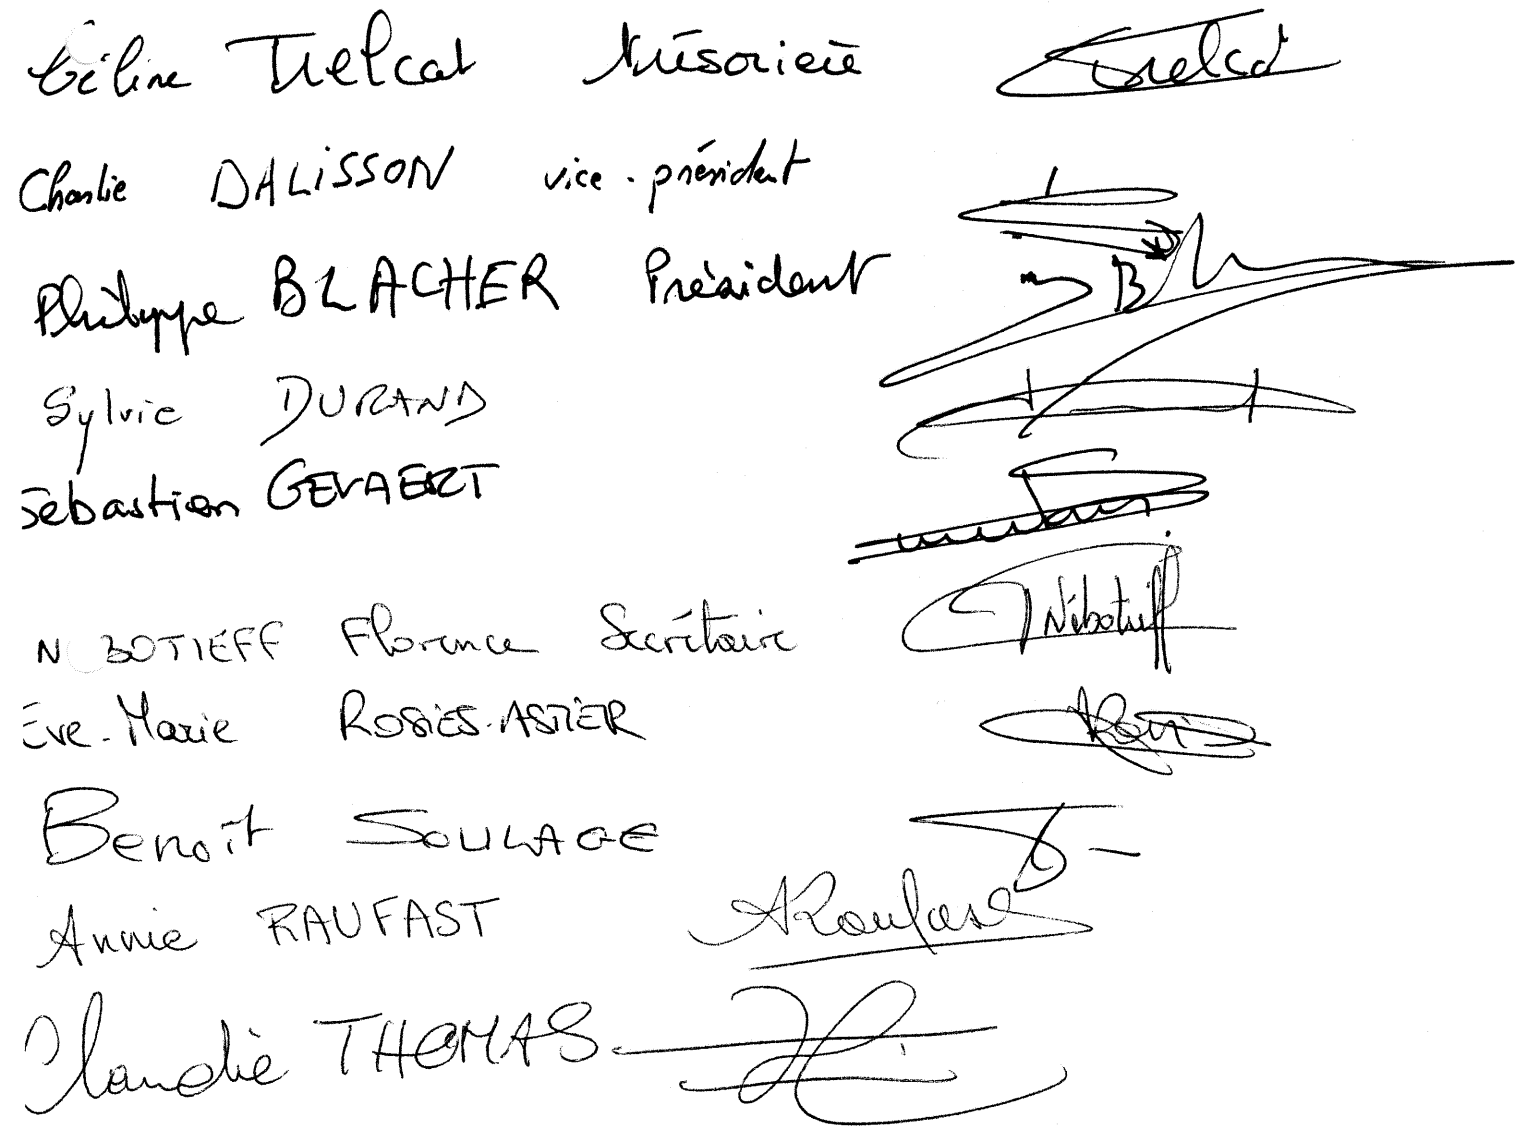 Céline Trelcat trésorière Trelcat
Charlie DALISSON vice-président
Philippe BLACHER Président
Sylvie DURAND
Sébastien GEVAERT
NIBOTIEFF Florence Secrétaire Nibotieff
Eve-Marie ROSIES-ASTIER
Benoît SOULAGE
Annie RAUFAST ARaufast
Claudie THOMAS